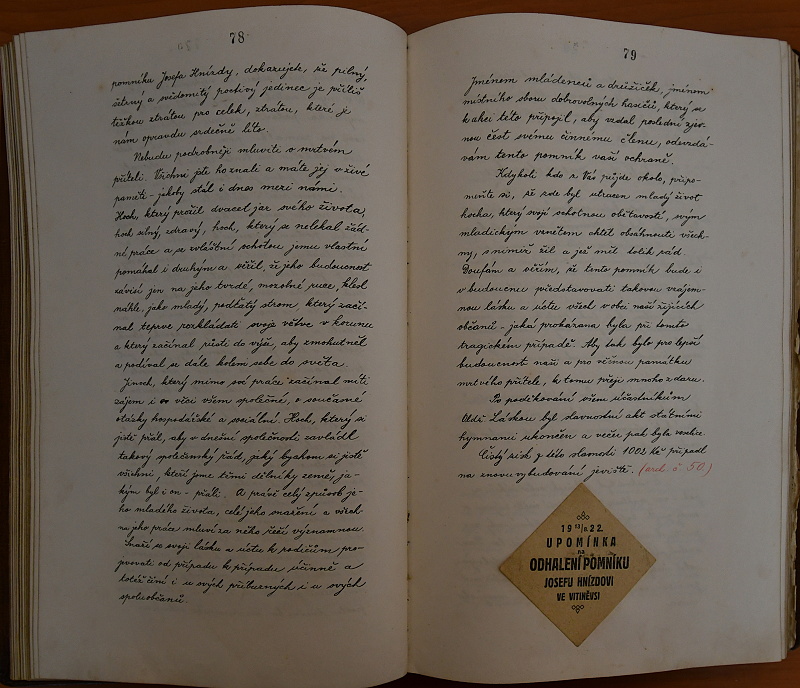 78
pomníku Josefa Hnízdy, dokazujete, že pilný,
šetrný a svědomitý poctivý jedinec je příliš
těžkou ztrátou pro celek, ztrátou, které je
nám opravdu srdečně líto.
Nebudu podrobněji mluviti o mrtvém
příteli. Všichni jste ho znali a máte jej v živé
paměti - jakoby stál i dnes mezi námi.
Hoch, který prožil dvacet jar svého života,
hoch silný, zdravý, hoch, který se nelekal žád-
né práce a se zvláštní ochotou jemu vlastní
pomáhal i druhým a věřil, že jeho budoucnost
závisí jen na jeho tvrdé, mozolné ruce, klesl
náhle, jako mladý, podťatý strom, který začí-
nal teprve rozkládati svoje větve v korunu
a který začínal růsti do výše, aby zmohutněl
a podíval se dále kolem sebe do světa.
Jinoch, který mimo své práce začínal míti
zájem i o věci všem společné, o současné
otázky hospodářské a sociální. Hoch, který si
jistě přál, aby v dnešní společnosti zavládl
takový společenský řád, jaký bychom si jistě
všichni, kteří jsme těmi dělníky země, ja-
kým byl i on - přáli. A právě celý způsob je-
ho mladého života, celé jeho snažení a všech-
na jeho práce mluví za něho řečí významnou.
Snaží se svoji lásku a úctu k rodičům pro-
jevovati od případu k případu účinně a
totéž činí i u svých příbuzných i u svých
spoluobčanů.
79
Jménem mládenců a družiček, jménem
místního sboru dobrovolných hasičů, který se
k akci této připojil, aby vzdal poslední zjev-
nou čest svému činnému členu, odevzdá-
vám tento pomník vaší ochraně.
Kdykoli kdo z Vás půjde okolo, připo-
meňte si, že zde byl utracen mladý život
hocha, který svojí ochotnou obětavostí, svým
mladickým vznětem chtěl obsáhnouti všech-
ny, s nimiž žil a jež měl tolik rád.
Doufám a věřím, že tento pomník bude i
v budoucnu představovati takovou vzájem-
nou lásku a úctu všech v obci naší žijících
občanů - jaká prokázána byla při tomto
tragickém případě. Aby tak bylo pro lepší
budoucnost naši a pro věčnou památku
mrtvého přítele, k tomu přeji mnoho zdaru.
Po poděkování všem účastníkům
Láskou byl slavnostní akt státními
hymnami ukončen a večer pak byla veselice.
Čistý zisk z této slavnosti 1002 Kč připadl
na znovuvybudování jeviště. (arch. č. 50.)
19 13/8. 22.
UPOMÍNKA
na
ODHALENÍ POMNÍKU
JOSEFU HNÍZDOVI
VE VITINĚVSI